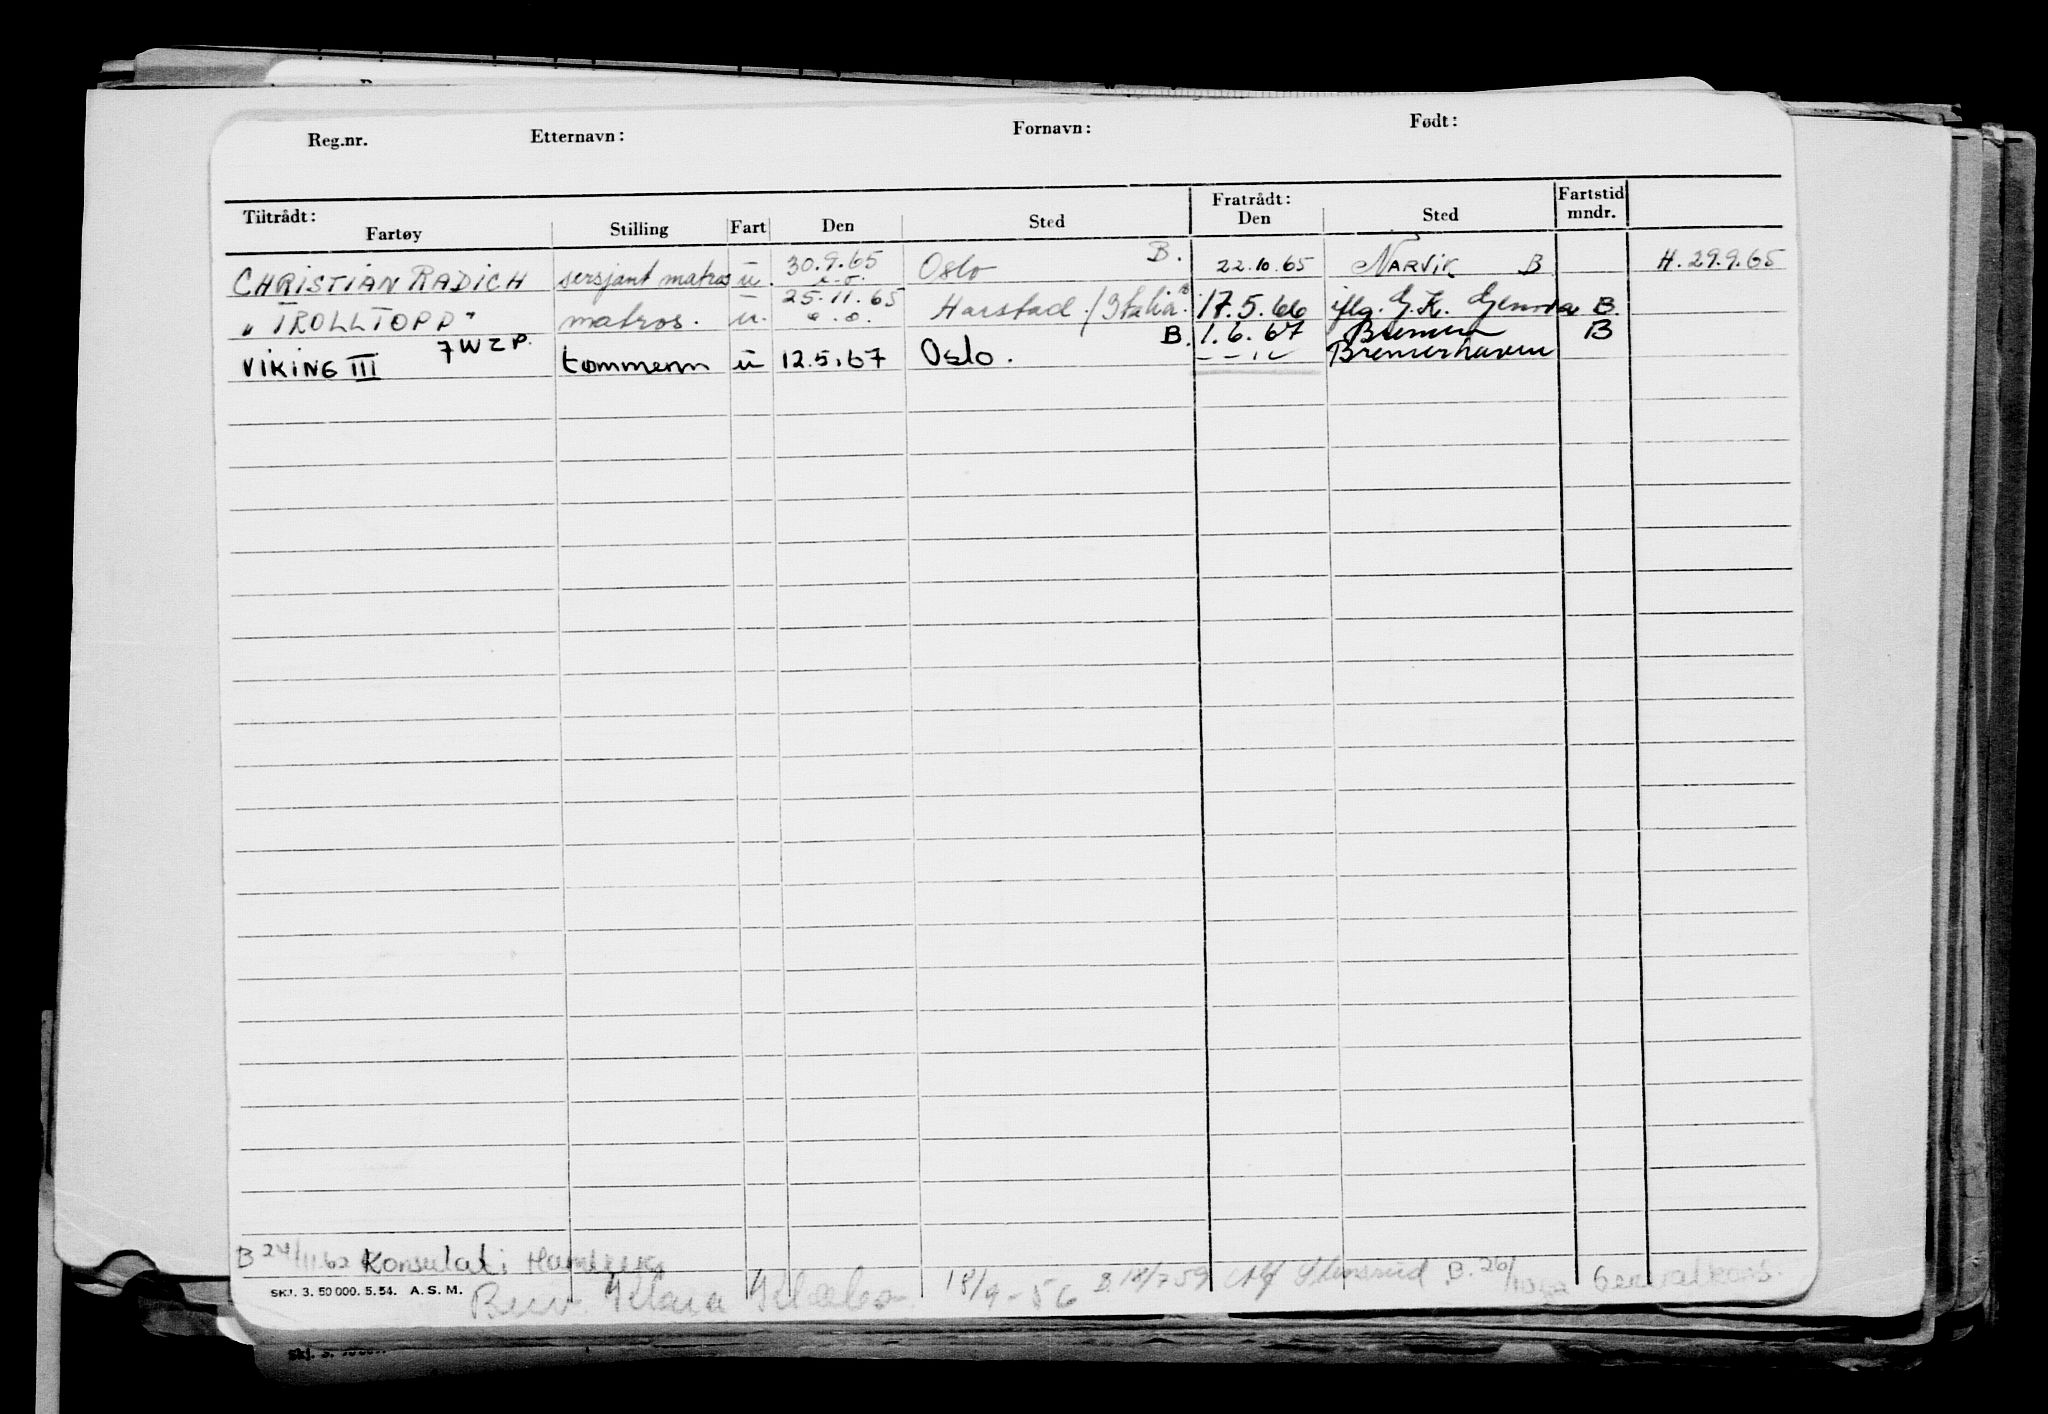 Reg.nr. Etternavn: Fornavn: Født:
Tiltrådt: Fratrådt: Fartstid
Fartøy Stilling Fart Den Sted Den Sted mndr.
CHRISTIAN RADICH sersjant matros u. 30.9.65 Oslo B. 22.10.65 NARVIK B H. 29.9.65
"TROLLTOPP" matros. u. 25.11.65 Harstad. / Italia. B 17.5.66 iflg. G.K. Genova B.
VIKING III 7WZP. tømmerm u 12.5.67 Oslo. B. 1.6.67 Bremen B
Bremerhaven
B 24/11.62 Konsulat i
SKJ. 3. 50 000. 5. 54. A. S. M. 18/9-56 B 18/7 59 Alf Stensrud B. 26/
Skj. 3.